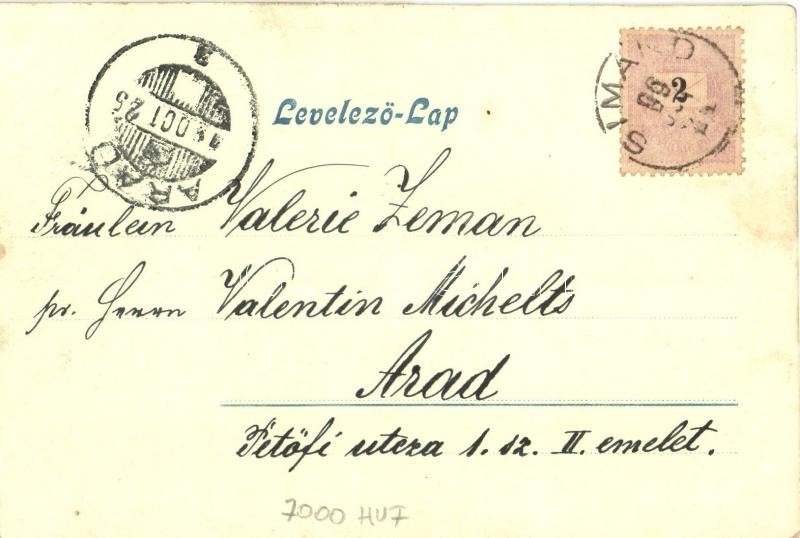 Levelező-Lap
SIMÁND
99
2
E
OCT 25
ARAD
Fräulein Valerie Zeman
pr. Herrn Valentin Michelts
Arad
Petőfi utcza 1. sz. II. emelet.
7000 HUF